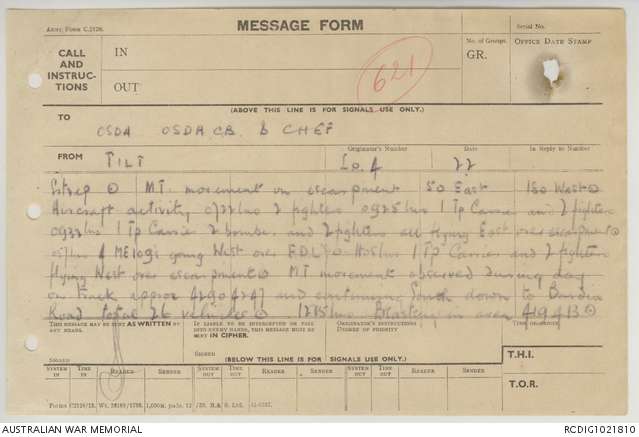 Army Form C.2128.
MESSAGE FORM
Serial No.
CALL AND INSTRUCTIONS
IN
OUT
No. of Groups.
GR.
OFFICE DATE STAMP
621
(ABOVE THIS LINE IS FOR SIGNALS USE ONLY.)
TO
OSDA OSDA CB. b CHEF
FROM
TILT
Originator's Number
Io. 4
Date
22
In Reply to Number
M.T. movement on escarpment 50 East 150 West
Aircraft activity 0722 hrs 2 fighters 0925 hrs 1 Tp Carrier and 2 fighters
0922 hrs 1 Tp Carrier 2 bomber and 2 fighters all flying East over escarpment
4 ME109s going West over F.D.L. 1 Tp Carrier and 2 fighters
flying West over escarpment M.T movement observed during day
on track approx 4290 4247 and continuing South down to Bardia
Road total 26 vehicles 1215 hrs Blasting in area 419413
THIS MESSAGE MAY BE SENT AS WRITTEN BY ANY MEANS.
IF LIABLE TO BE INTERCEPTED OR FALL INTO ENEMY HANDS, THIS MESSAGE MUST BE SENT IN CIPHER.
ORIGINATOR'S INSTRUCTIONS
DEGREE OF PRIORITY
TIME OF ORIGIN
SIGNED
SIGNED
(BELOW THIS LINE IS FOR SIGNALS USE ONLY.)
T.H.I.
SYSTEM IN
TIME IN
READER
SENDER
SYSTEM OUT
TIME OUT
READER
SENDER
SYSTEM OUT
TIME OUT
READER
SENDER
T.O.R.
AUSTRALIAN WAR MEMORIAL
RCDIG1021810